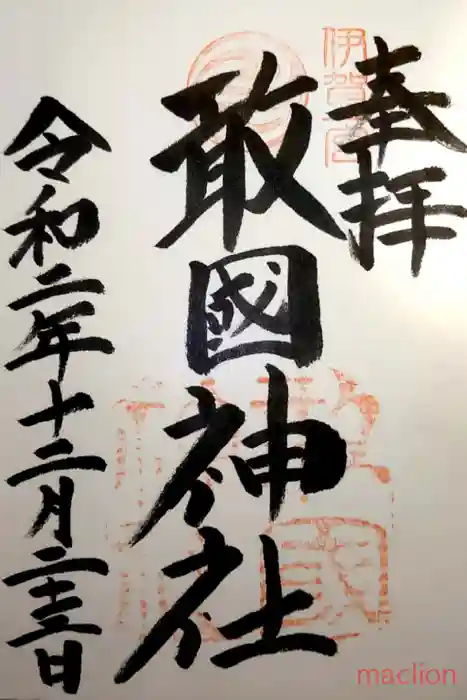 奉拝
伊賀
敢國神社
令和二年十二月二十三日
maclion